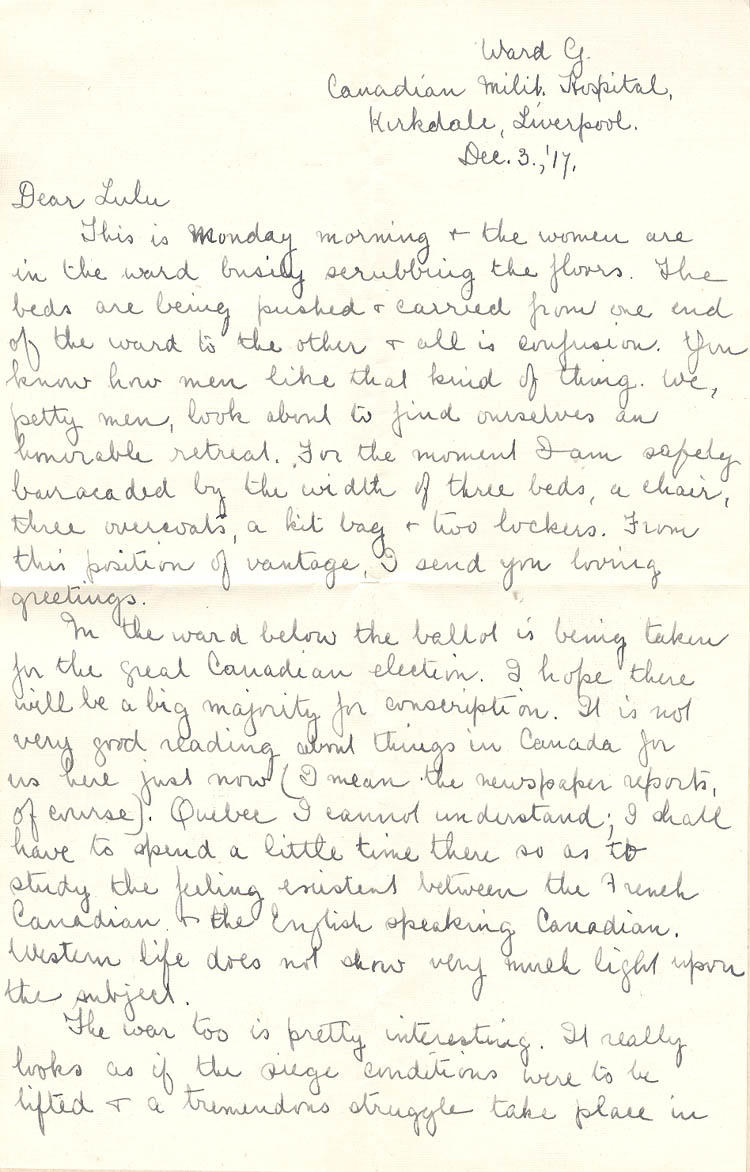 Ward G.
Canadian Milit. Hospital,
Kirkdale, Liverpool.
Dec. 3., '17.
Dear Lulu
This is Monday morning + the women are
in the ward busily scrubbing the floors. The
beds are being pushed + carried from one end
of the ward to the other + all is confusion. You
know how men like that kind of thing. We,
petty men, look about to find ourselves an
honorable retreat. For the moment I am safely
barracaded by the width of three beds, a chair,
three overcoats, a kit bag + two lockers. From
this position of vantage, I send you loving
greetings.
In the ward below the ballot is being taken
for the great Canadian election. I hope there
will be a big majority for conscription. It is not
very good reading about things in Canada for
us here just now (I mean the newspaper reports,
of course). Quebec I cannot understand; I shall
have to spend a little time there so as to
study the feeling existent between the French
Canadian + the English speaking Canadian.
Western life does not show very much light upon
the subject.
The war too is pretty interesting. It really
looks as if the siege conditions were to be
lifted + a tremendous struggle take place in